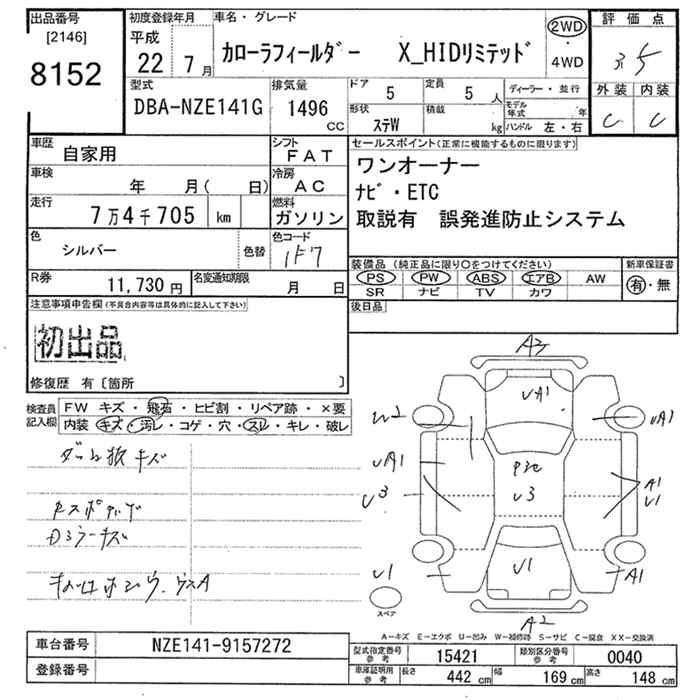 出品番号
[2146]
8152
初度登録年月
平成
22 7月
車名・グレード
カローラフィールダー X_HIDリミテッド
2WD
・
4WD
評価点
3.5
外装 内装
C C
型式
DBA-NZE141G
排気量
1496
CC
ドア
5
定員
5人
形状
ステW
積載
kg
ディーラー・並行
モデル年式 年
ハンドル 左・右
車歴
自家用
シフト
FAT
車検
年 月( 日)
冷房
AC
走行
7万4千705 km
燃料
ガソリン
色
シルバー
色替
色コード
1F7
R券
11,730円
名変通知期限
月 日
セールスポイント(正常に機能するものに限ります)
ワンオーナー
ナビ・ETC
取説有 誤発進防止システム
装備品 (純正品に限り○をつけてください)
新車保証書
PS PW ABS エアB AW
有・無
SR ナビ TV カワ
後日品
注意事項申告欄(不具合内容等は具体的に記入して下さい)
初出品
修復歴 有〔箇所 〕
検査員記入欄
FW キズ・飛石・ヒビ割・リペア跡・×要
内装 キズ・汚レ・コゲ・穴・スレ・キレ・破レ
キズ
A3
UA1
W2
UA1
UA1
U3
U3
A1
U1
U1
U1
A1
A2
スペア
A-キズ E-エクボ U-凹み W-補修跡 S-サビ C-腐食 XX-交換済
車台番号
NZE141-9157272
登録番号
型式指定番号
参考
15421
類別区分番号
参考
0040
車庫証明用
参考
長さ 442 cm 幅 169 cm 高さ 148 cm